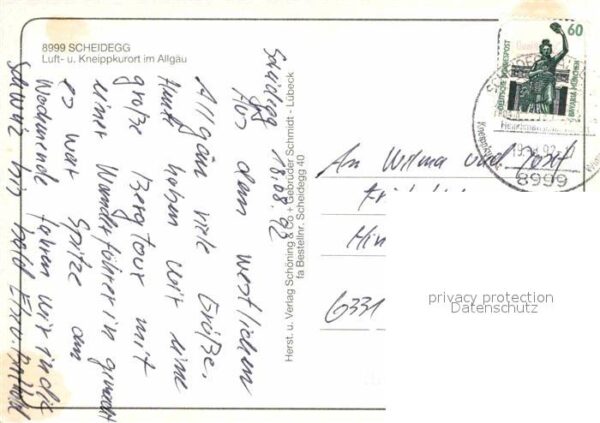 8999 SCHEIDEGG
Luft- u. Kneippkurort im Allgäu
Scheidegg 18.08.92
Aus dem westlichen
Allgäu viele Grüße.
Heut haben wir eine
große Bergtour mit
einer Wanderführerin gemacht
es war Spitze am
Wochenende fahren wir in die
Schweiz bis bald
Herst. u. Verlag Schöning & Co + Gebrüder Schmidt - Lübeck
fa Bestellnr. Scheidegg 40
60
DEUTSCHE BUNDESPOST
BAVARIA MÜNCHEN
8999
An Wilma und Josef
6331
privacy protection
Datenschutz